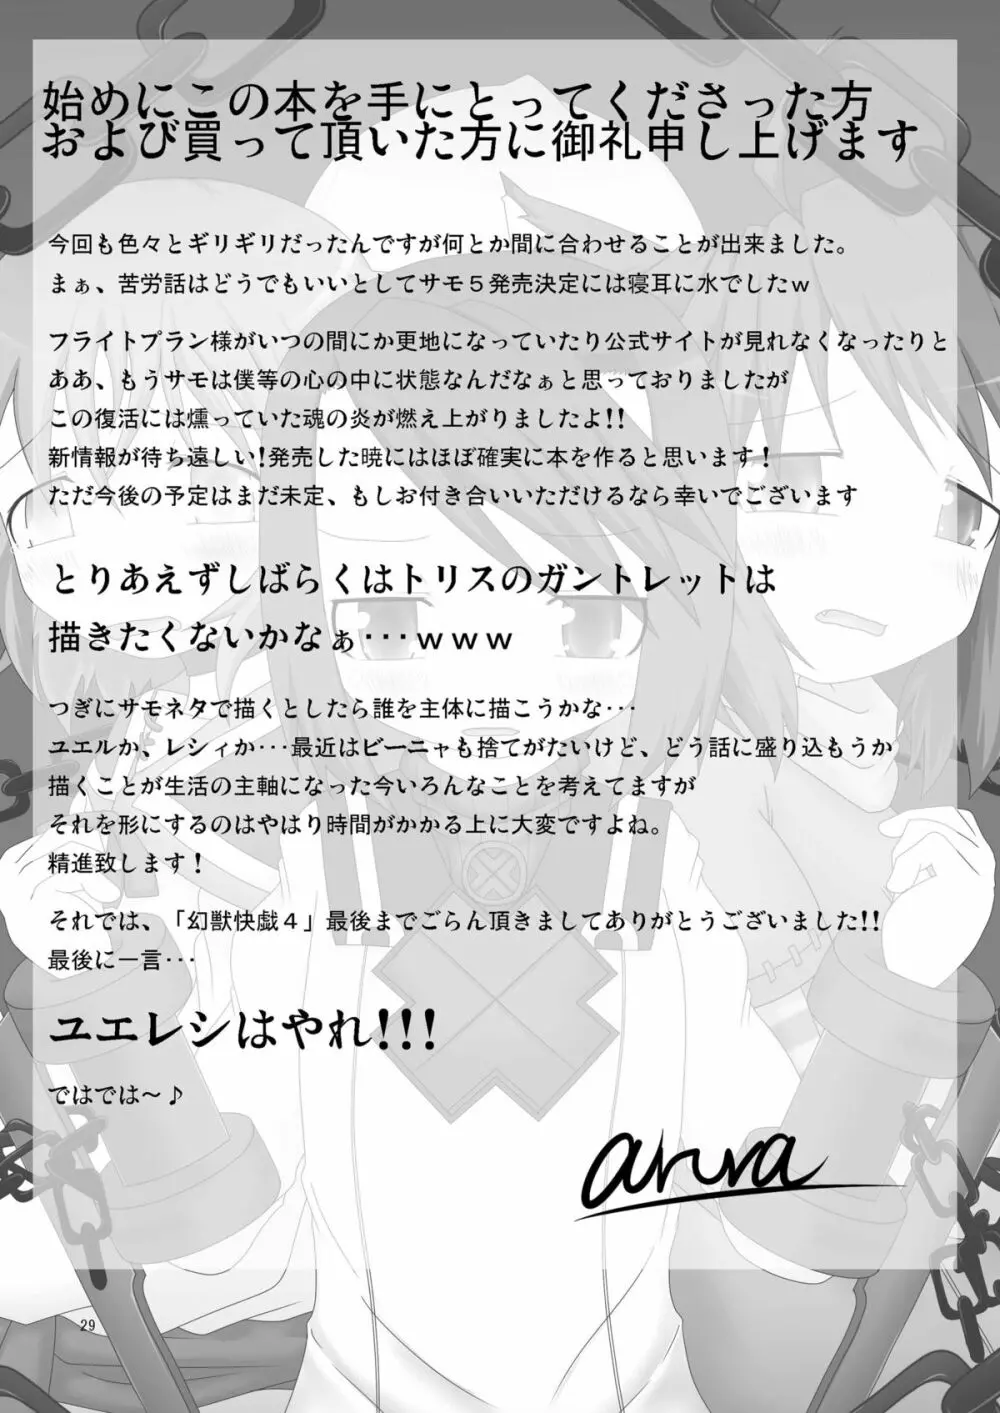 始めにこの本を手にとってくださった方
および買って頂いた方に御礼申し上げます
今回も色々とギリギリだったんですが何とか間に合わせることが出来ました。
まぁ、苦労話はどうでもいいとしてサモ５発売決定には寝耳に水でしたｗ
フライトプラン様がいつの間にか更地になっていたり公式サイトが見れなくなったりと
ああ、もうサモは僕等の心の中に状態なんだなぁと思っておりましたが
この復活には燻っていた魂の炎が燃え上がりましたよ!!
新情報が待ち遠しい!発売した暁にはほぼ確実に本を作ると思います！
ただ今後の予定はまだ未定、もしお付き合いいただけるなら幸いでございます
とりあえずしばらくはトリスのガントレットは
描きたくないかなぁ･･･ｗｗｗ
つぎにサモネタで描くとしたら誰を主体に描こうかな･･･
ユエルか、レシィか･･･最近はビーニャも捨てがたいけど、どう話に盛り込もうか
描くことが生活の主軸になった今いろんなことを考えてますが
それを形にするのはやはり時間がかかる上に大変ですよね。
精進致します！
それでは、「幻獣快戯４」最後までごらん頂きましてありがとうございました!!
最後に一言･･･
ユエレシはやれ!!!
ではでは～♪
arura
29